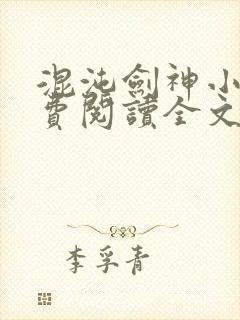 混沌劍神小
費閱讀全文
李孚青